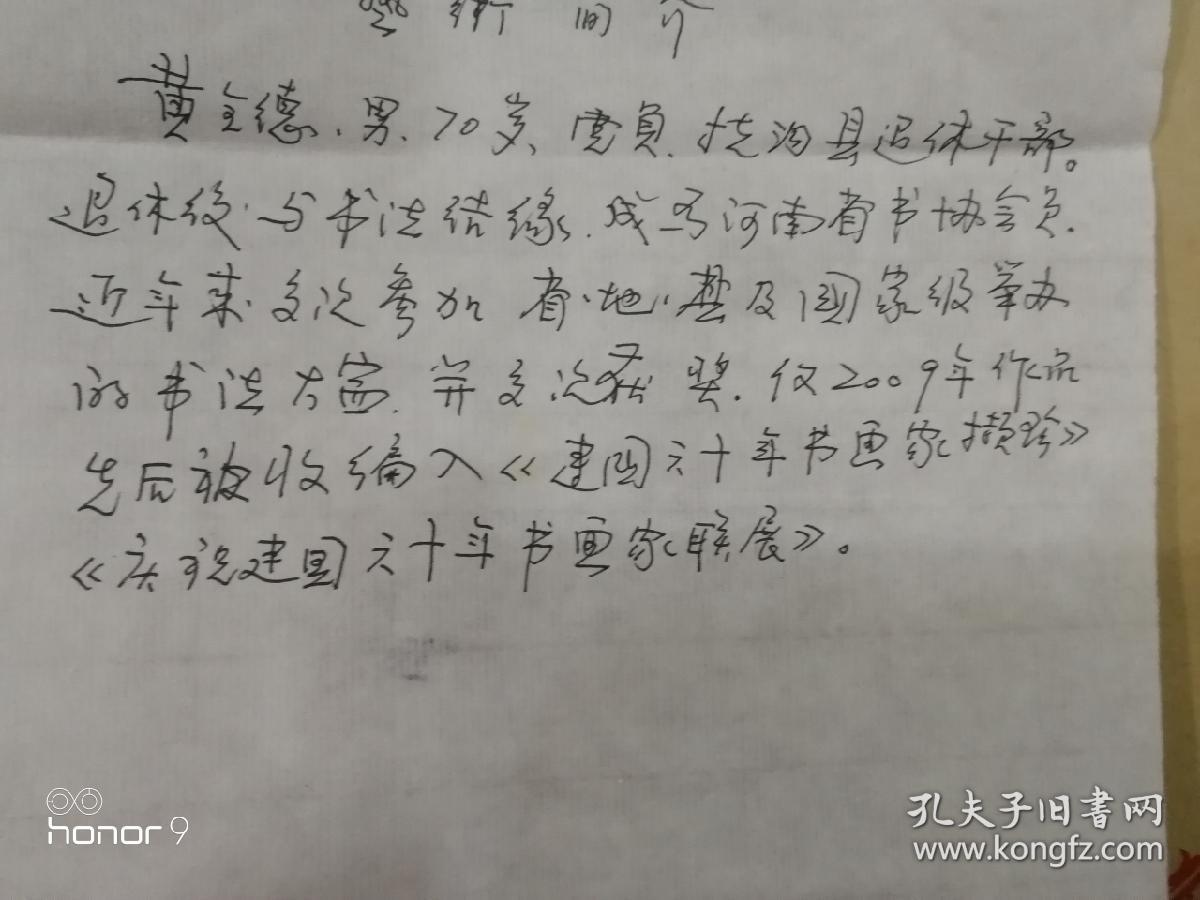 艺術间介
黄全德、男、70岁、党員、扶沟县退休干部。
退休後、与书法结缘、成为河南省书协会员.
近年来、多次参加省、地、县及國家级举办
的书法大赛、并多次获奖. 仅2009年作品
先后被收编入《建国六十年书画家撷珍》
《庆祝建国六十年书画家联展》。
honor 9
孔夫子旧書网
www.kongfz.com